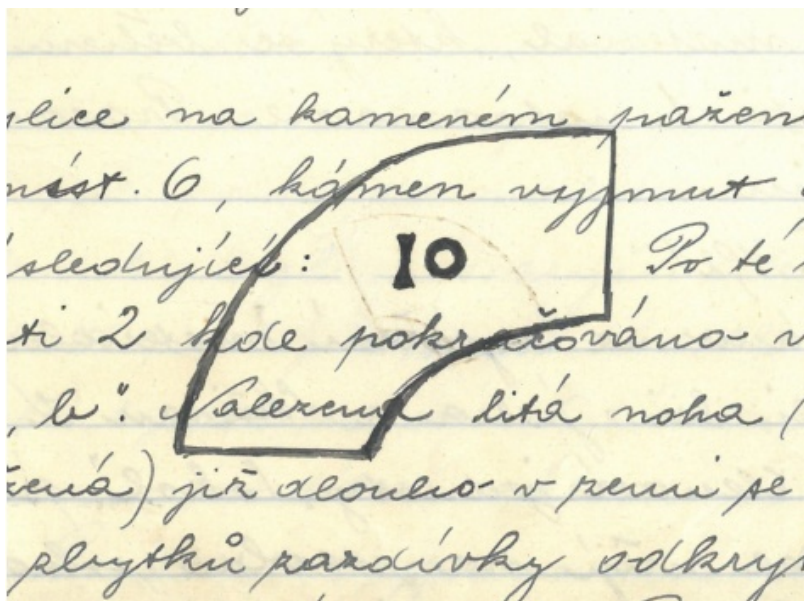 lice na kameném pažen
míst. 6, kámen vyjmut
sledující: IO Po té
ti 2 kde pokračováno v
„b". Nalezena litá noha (
žená) již dlouho v zemi se
zbytků zazdívky odkryt